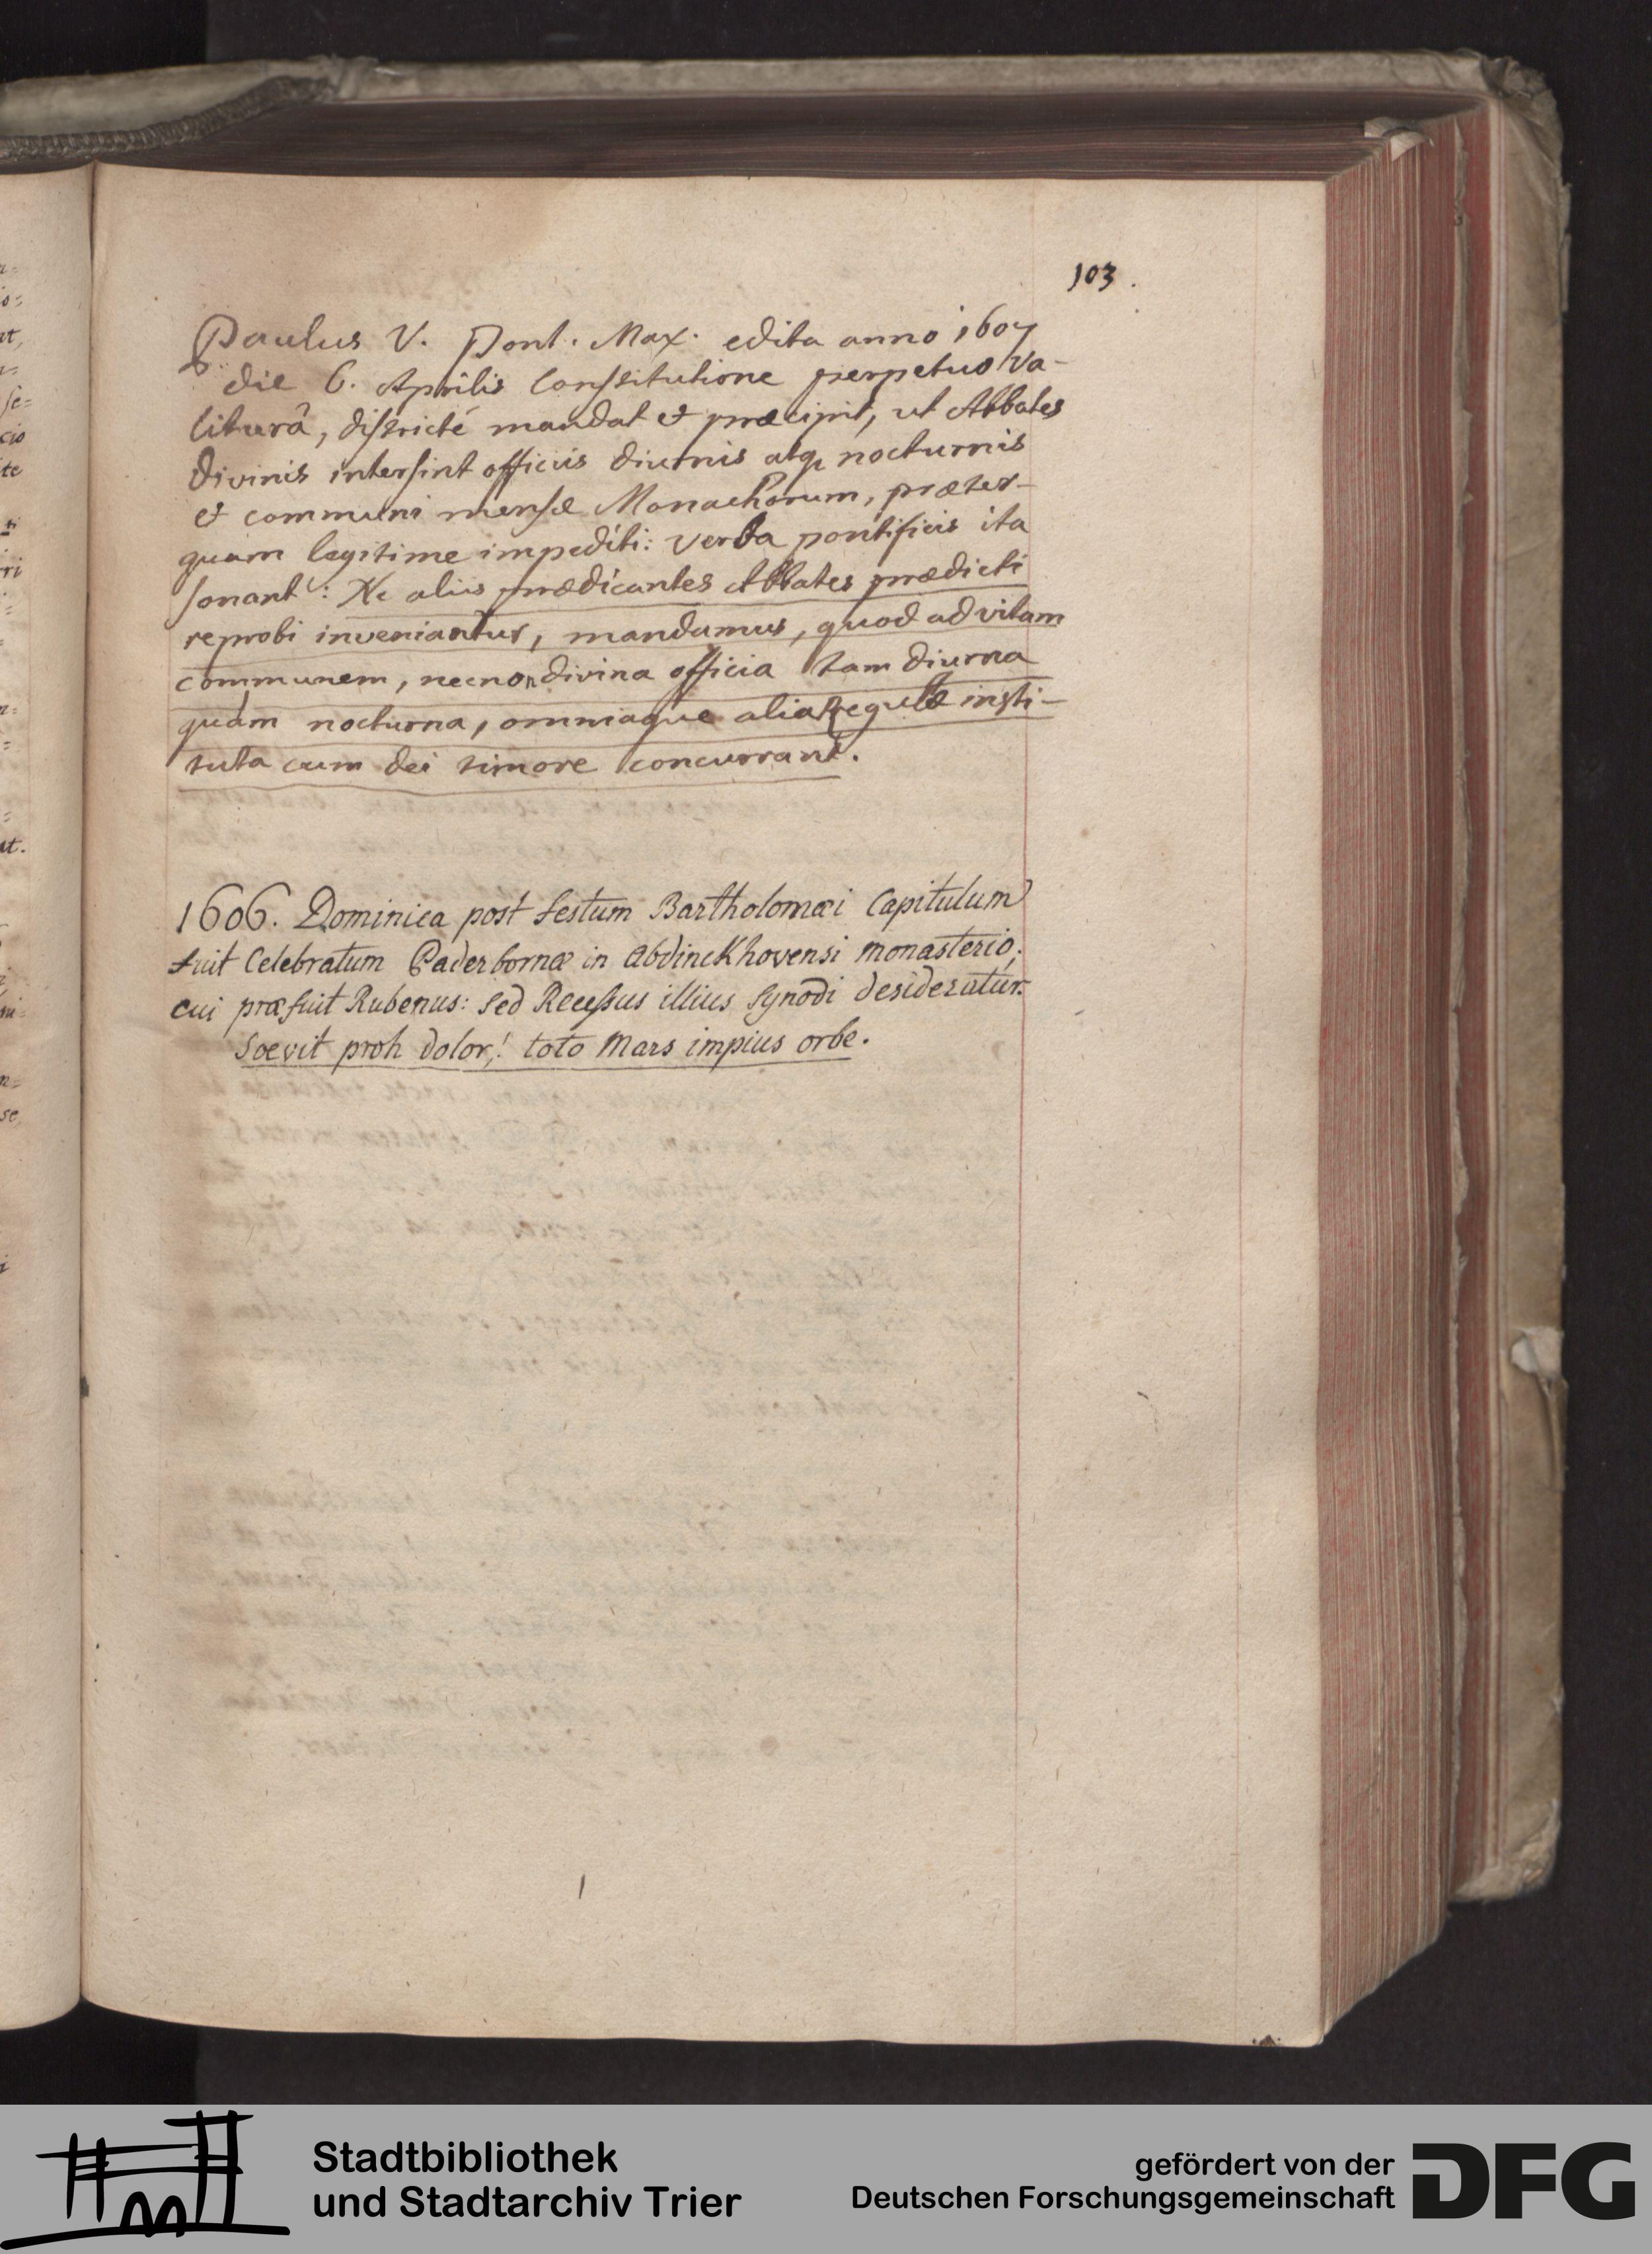 103.
Paulus V. Pont. Max. edita anno 1607
die 6. Aprilis Constitutione perpetuo va-
liturâ, districté mandat & præcipit, ut Abbates
divinis intersint officiis diurnis atq. nocturnis
& communi mensæ Monachorum, præter-
quam legitime impediti: verba pontificis ita
sonant: Ne aliis prædicantes Abbates prædicti
reprobi inveniantur, mandamus, quod ad vitam
communem, necnon divina officia tam diurna
quàm nocturna, omniaque alia Regulæ insti-
tuta cum dei timore concurrant.
1606. Dominica post festum Bartholomæi Capitulum
fuit Celebratum Paderbornæ in Abdinckhovensi monasterio;
cui præfuit Rubenus: sed Recessus illius Synodi desideratur.
Sævit proh dolor! toto Mars impius orbe.
Stadtbibliothek
und Stadtarchiv Trier
gefördert von der
Deutschen Forschungsgemeinschaft
DFG